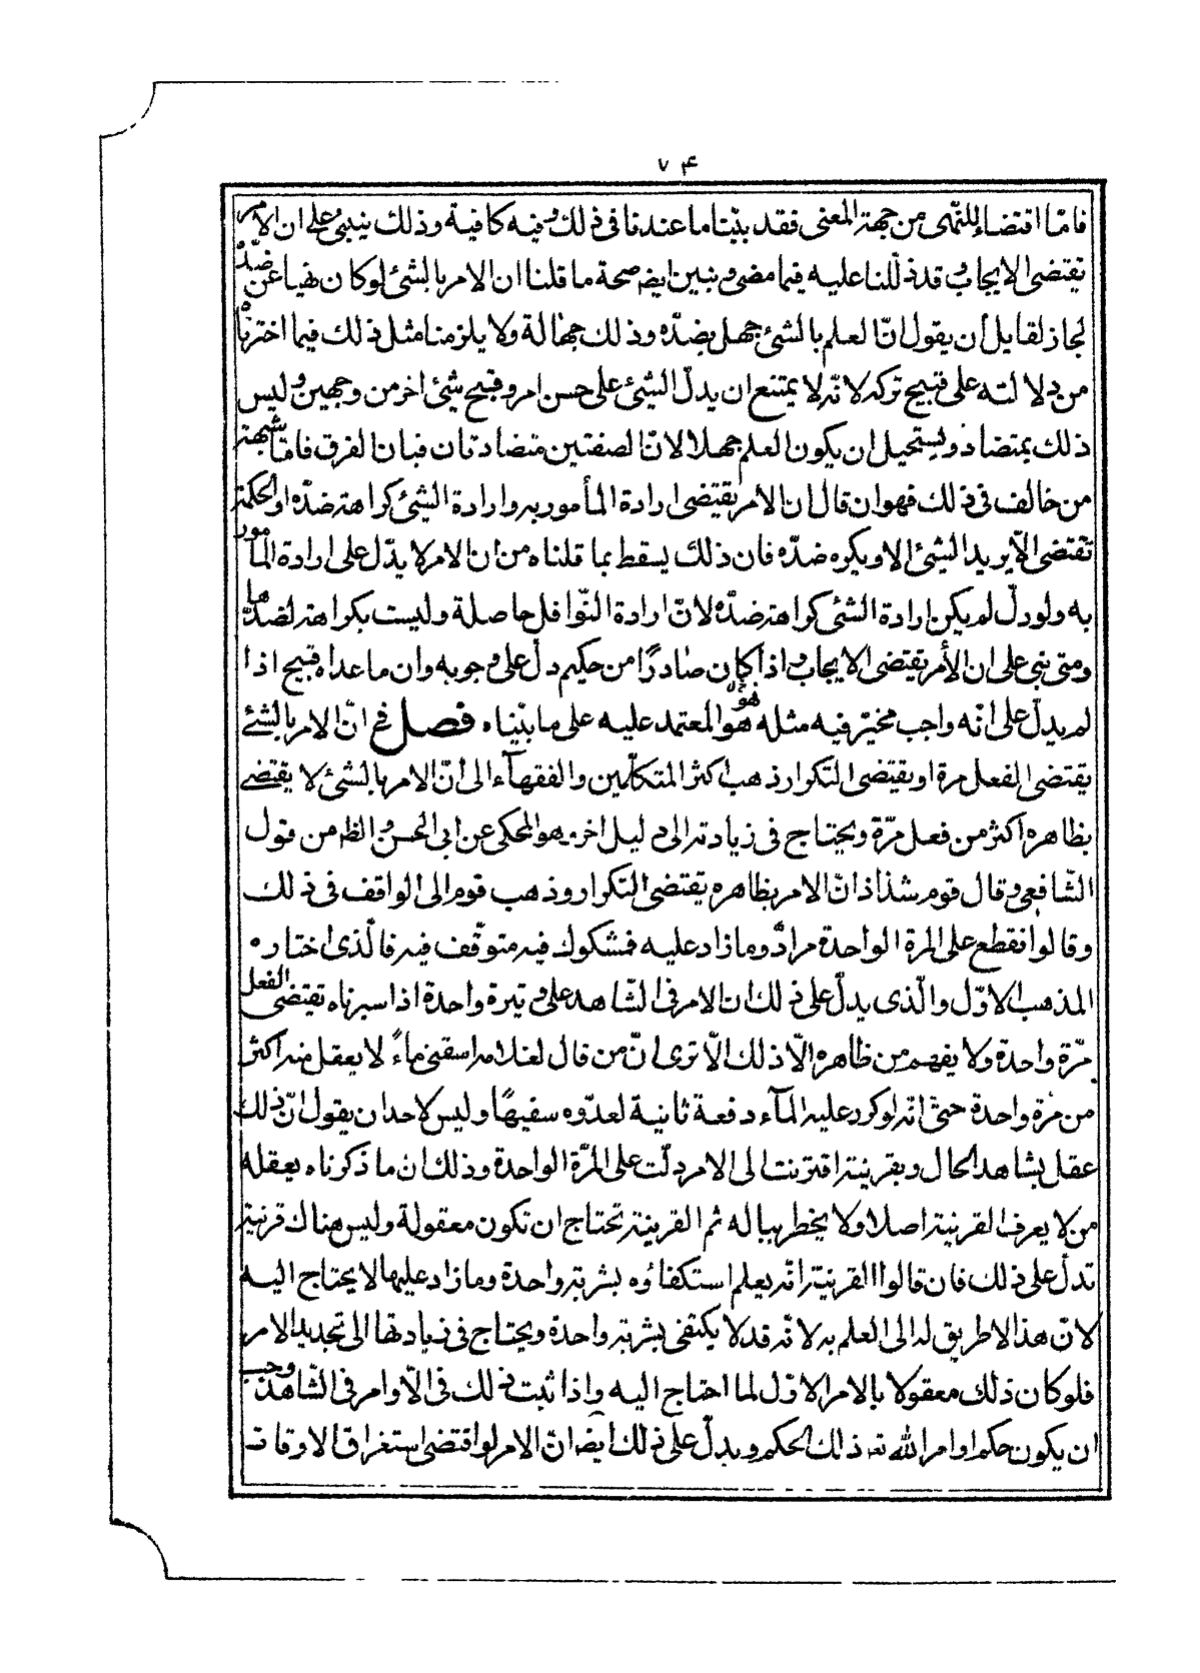 ۷۴
فامّا اقتضاء للنهى من جهة المعنى فقد بيّنّا ما عندنا فى ذلك وفيه كافية وذلك ينبئ على ان الامر
يقتضى الايجاب وقد دلّلنا عليه فيما مضى ونبين ايض صحة ما قلنا ان الامر بالشئ لو كان نهيا عن ضدّه
لجاز لقايل أن يقول انّ العلم بالشئ جهل بضدّه وذلك جهالة ولا يلزمنا مثل ذلك فيما اخترناه
من دلالته على قبيح تركه لانّه لا يمتنع ان يدلّ الشئ على حسن امر وقبيح شئ اخر من وجهين وليس
ذلك بمتضاد ويستحيل ان يكون العلم جهلا لانّ الصفتين متضادتان فبان الفرق فامّا شبهة
من خالف فى ذلك فهو ان قال ان الامر يقتضى ارادة المأمور به وارادة الشئ كراهة ضدّه او الحكمة
تقتضى الّا يريد الشئ الا ويكره ضدّه فان ذلك يسقط بما قلناه من ان الامر لا يدّل على ارادة المأمور
به ولو دلّ لم يكن ارادة الشئ كراهة ضدّه لانّ ارادة النّوافل حاصلة وليست بكراهة لضدّها
ومتى نبى على ان الأمر يقتضى الايجاب واذا كان صادرًا من حكيم دلّ على وجوبه وان ما عداه قبيح اذا
لم يدلّ على انّه واجب مخيّر فيه مثله هو المعتمد عليه على ما بيّناه فصل فى انّ الامر بالشئ
يقتضى الفعل مرة او يقتضى التكرار ذهب اكثر المتكلّمين والفقهآء الى أنّ الامر بالشئ لا يقتضى
بظاهره اكثر من فعل مرّة ويحتاج فى زيادته الى دليل اخر وهو المحكى عن ابى الحسن والظ من قول
الشّافعى وقال قوم شذاذ انّ الامر بظاهره يقتضى التكرار وذهب قوم الى الواقف فى ذلك
وقالوا نقطع على المرة الواحدة مرادٌ وما زاد عليه فمشكوك فيه متوقّف فيه فالّذى اختاره
المذهب الاوّل والّذى يدلّ على ذلك ان الامر فى الشّاهد على وتيرة واحدة اذا سبرناه تقتضى الفعل
مرّة واحدة ولا يفهم من ظاهره الّا ذلك الّا ترى انّ من قال لغلامه اسقنى ماءً لا يعقل منه اكثر
من مرّة واحدة حتّى انّه لو كرر عليه المآء دفعة ثانية لعدّوه سفيهًا وليس لاحد ان يقول انّ ذلك
عقل بشاهد الحال وبقرينة اقترنت الى الامر دلّت على المرّة الواحدة وذلك ان ما ذكرناه يعقله
من لا يعرف القرينة اصلا ولا يخطر بباله ثم القرينة تحتاج ان تكون معقولة وليس هناك قرنية
تدلّ على ذلك فان قالوا القرينة انّه يعلم استكفاؤه بشربة واحدة وما زاد عليها لا يحتاج اليه
لانّ هذا لا طريق له الى العلم به لانّه قد لا يكتفى بشربة واحدة ويحتاج فى زيادتها الى تجديد الامر
فلو كان ذلك معقولا بالامر الاوّل لما احتاج اليه واذا ثبت ذلك فى الّاوامر فى الشّاهد وجب
ان يكون حكم اوامر الله تعـ ذلك الحكم ويدلّ على ذلك ايضا انّ الامر لو اقتضى استغراق الاوقات